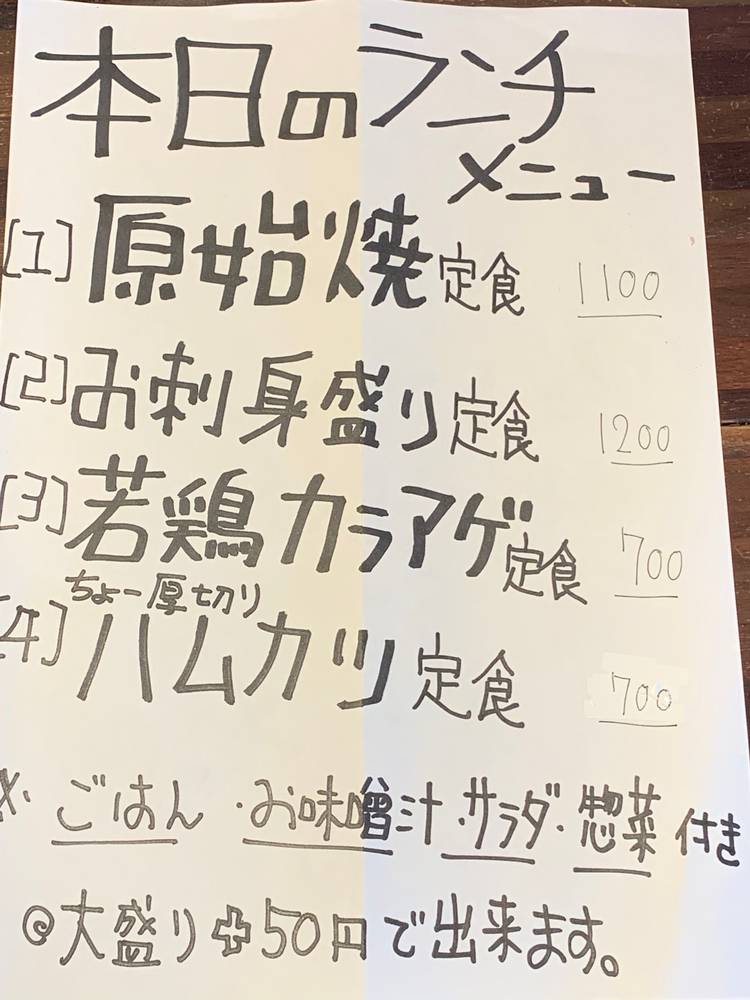 本日のランチ
メニュー
[1] 原始焼定食 1100
[2] お刺身盛り定食 1200
[3] 若鶏カラアゲ定食 700
ちょー厚切り
[4] ハムカツ定食 700
※ ごはん・お味噌汁・サラダ・惣菜付き
◎大盛り+50円で出来ます。